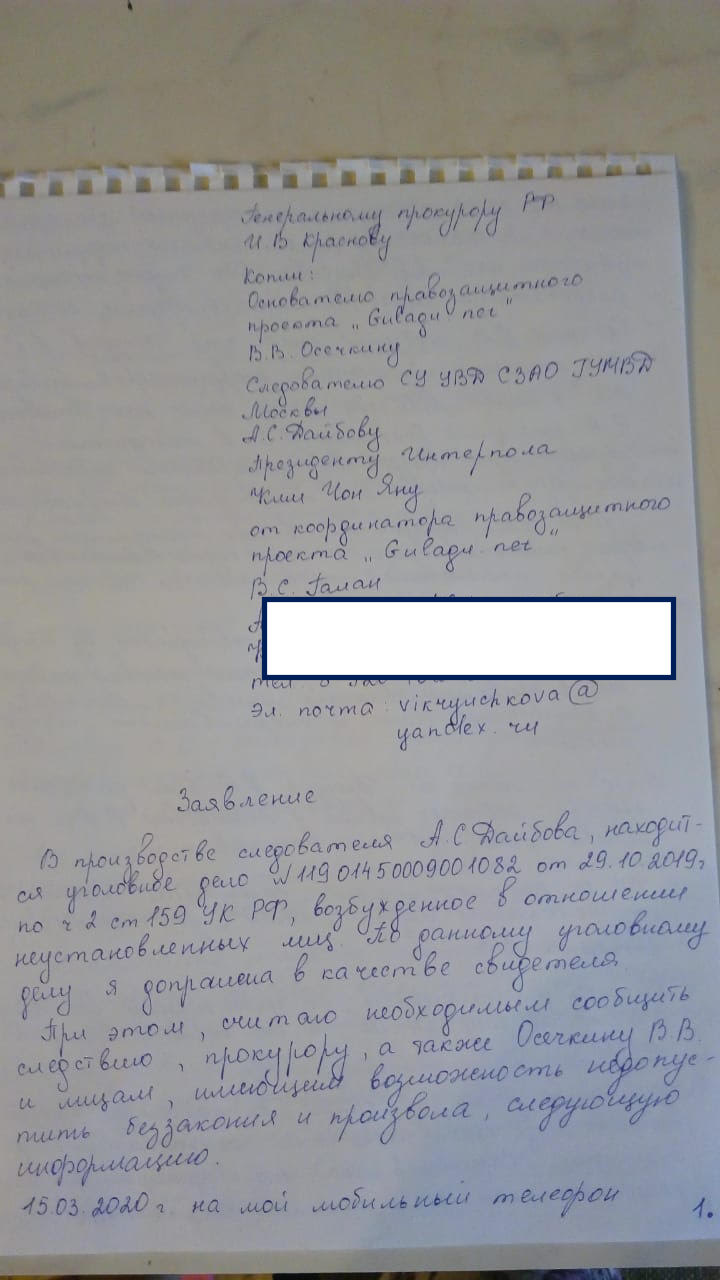 Генеральному прокурору РФ
И.В Краснову
Копии:
Основателю правозащитного
проекта „Gulagu. net"
В.В. Осечкину
Следователю СУ УВД СЗАО ГУМВД
Москвы
А.С. Дайбову
Президенту Интерпола
Ким Чон Яну
от координатора правозащитного
проекта „Gulagu. net"
В.С. Галан
тел. 8
Эл. почта: vikryuchkova@
yandex.ru
Заявление
В производстве следователя А.С Дайбова, находит-
ся уголовное дело №11901450009001082 от 29.10.2019г
по ч 2 ст 159 УК РФ, возбужденное в отношении
неустановленных лиц. По данному уголовному
делу я допрошена в качестве свидетеля.
При этом, считаю необходимым сообщить
следствию, прокурору, а также Осечкину В.В.
и лицам, имеющим возможность недопус-
тить беззакония и произвола, следующую
информацию.
15.03.2020г на мой мобильный телефон
1.